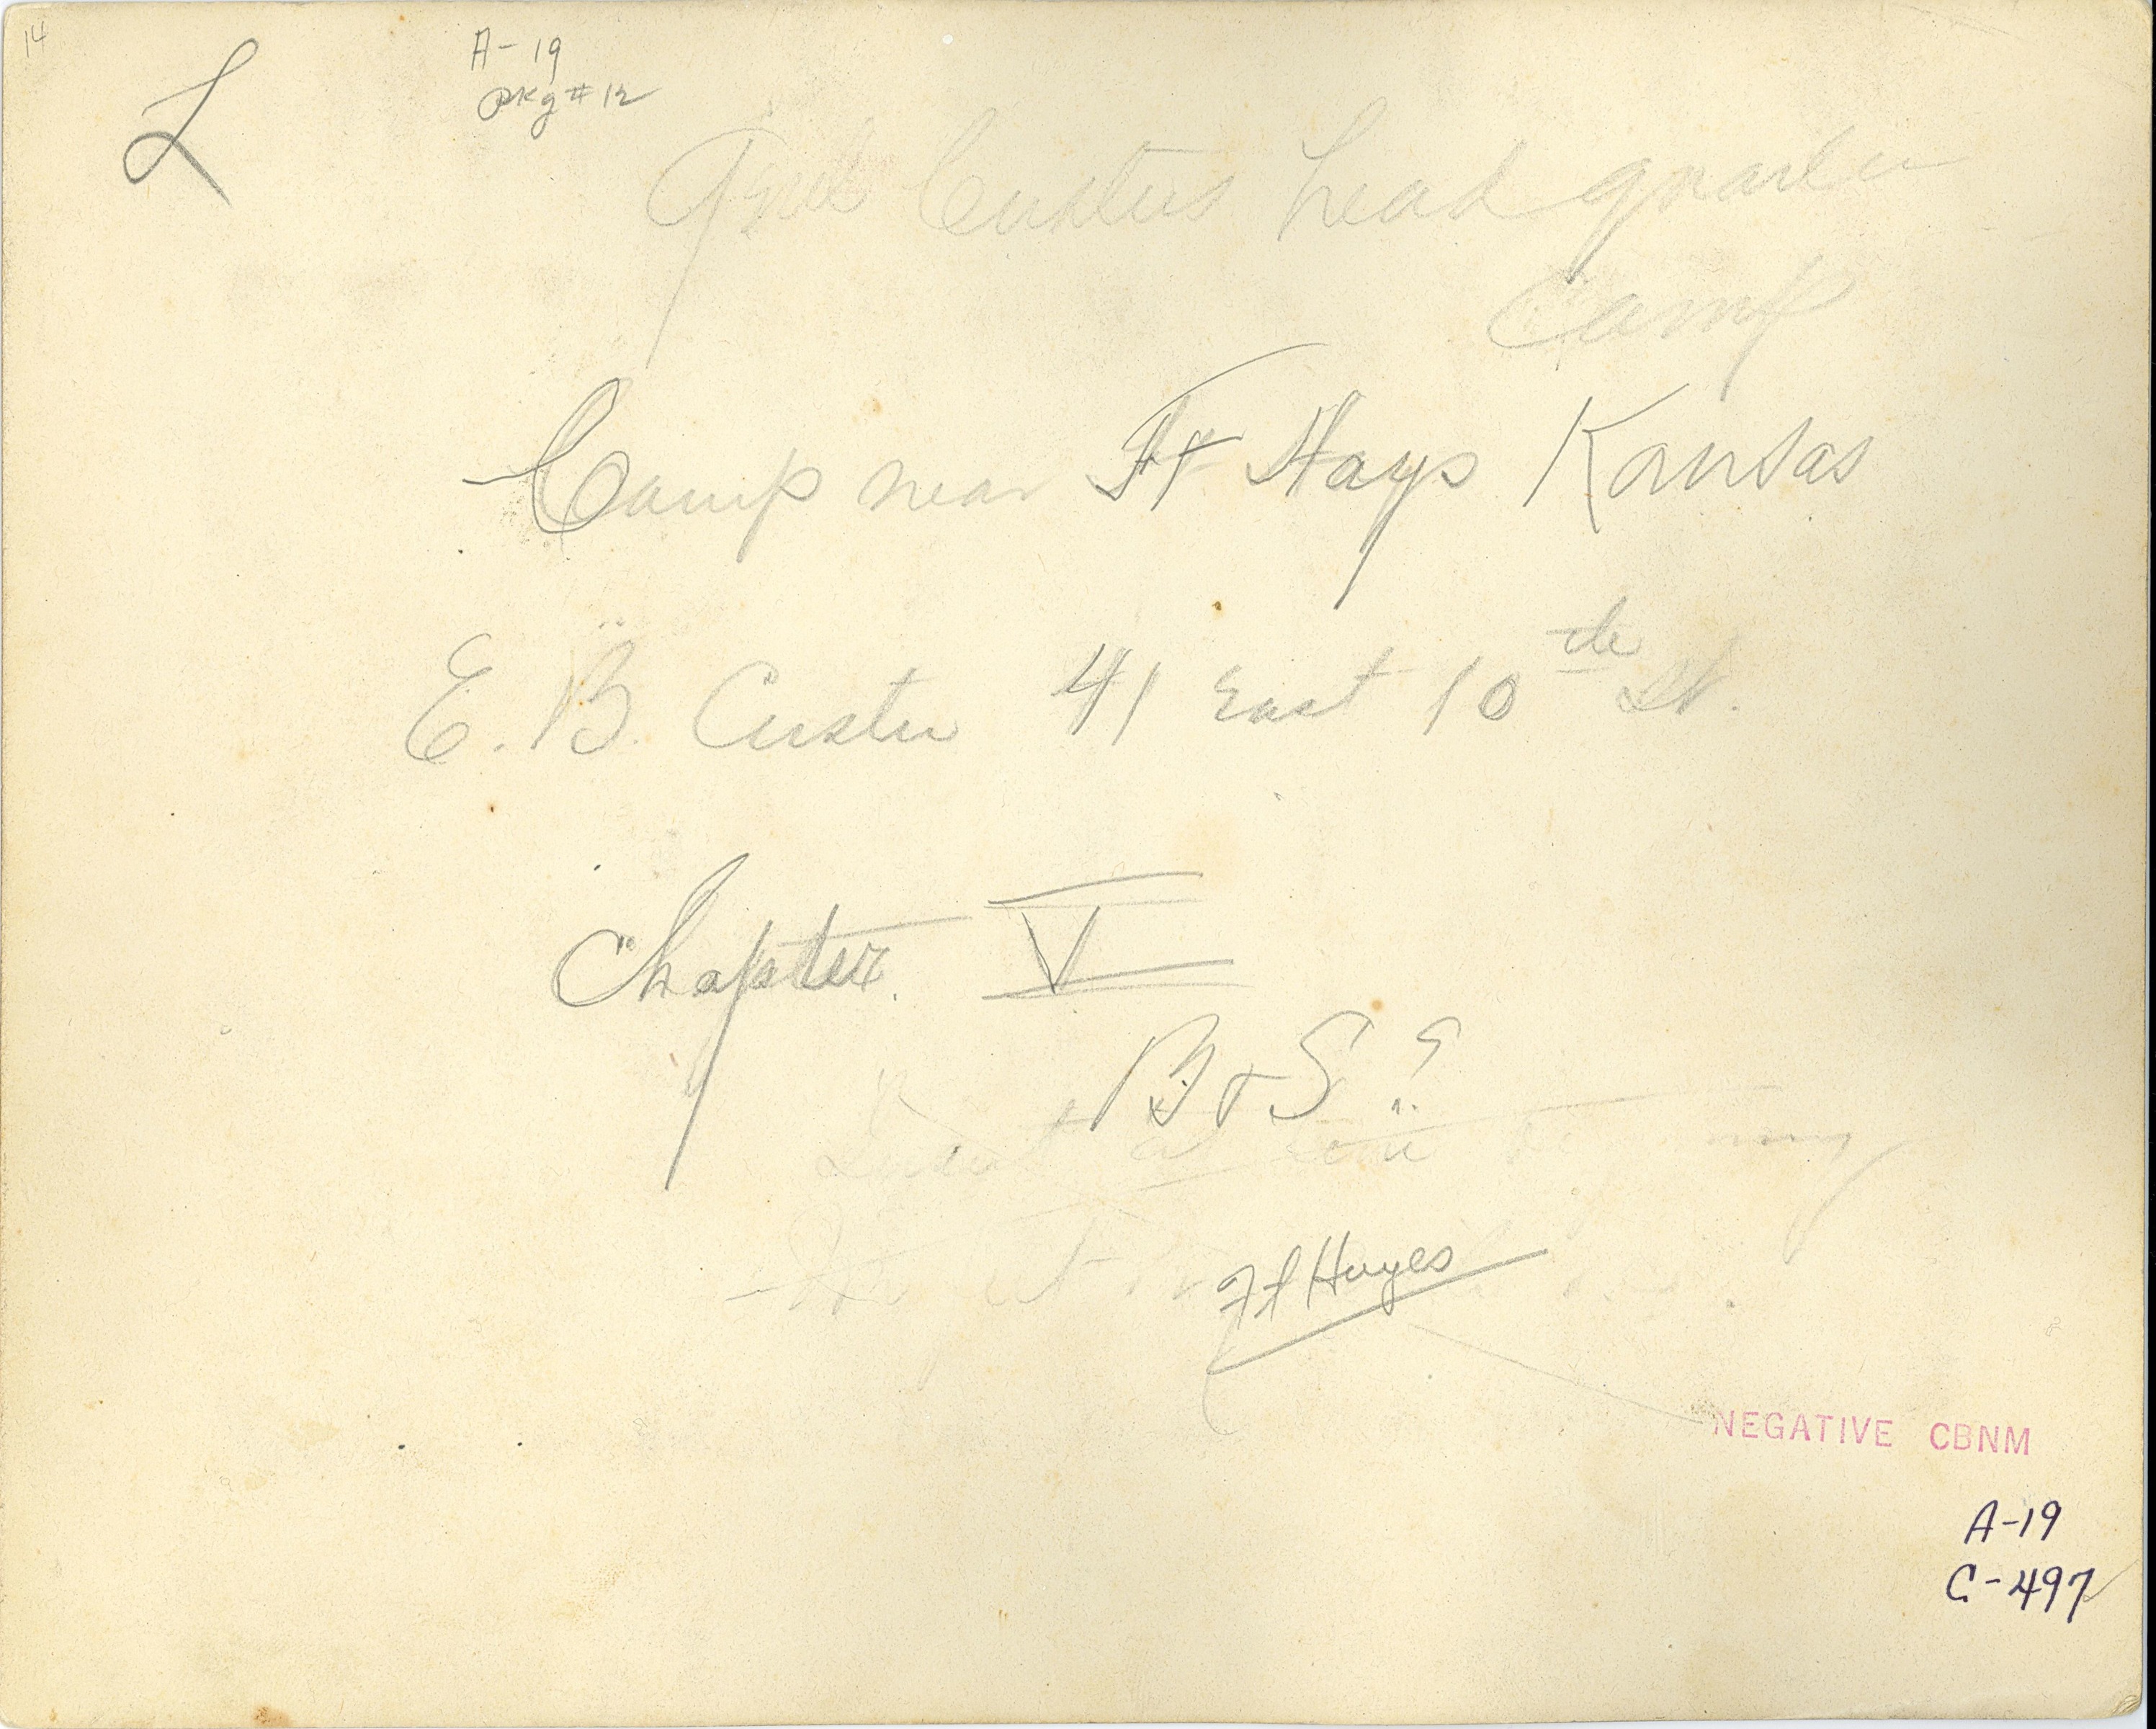 14
L
A-19
Pkg # 12
Genl Custers head quarter
Camp
Camp near Ft Hays Kansas
E. B. Custer 41 East 10th St.
Chapter. V
B + S ?
Ft Hayes
NEGATIVE CBNM
A-19
C-497